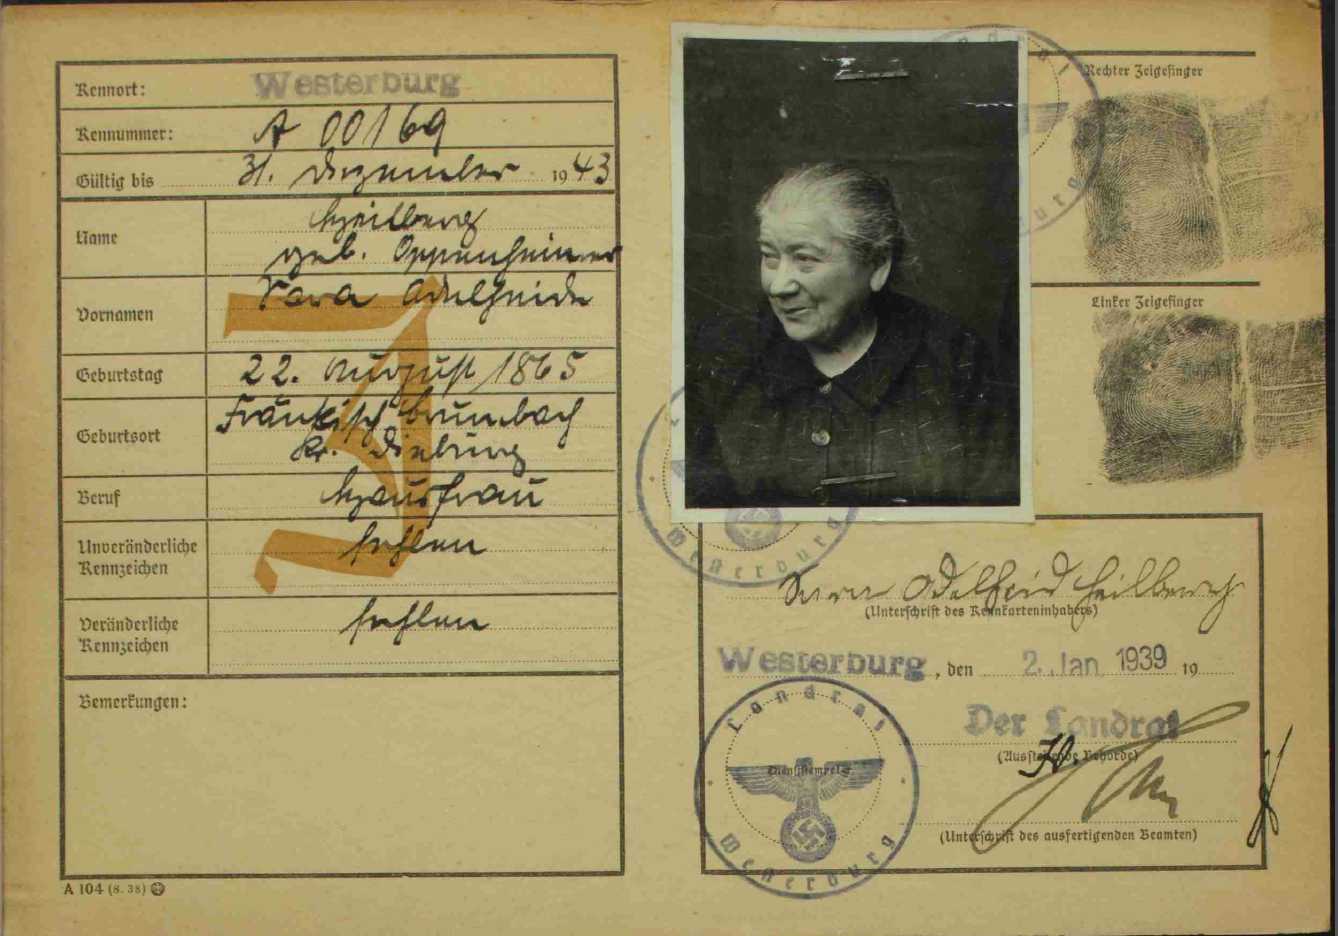 Kennort: Westerburg
Kennummer: A 00169
Gültig bis 31. Dezember 1943
Name Heilberg
geb. Oppenheimer
Vornamen Sara Adelheide
Geburtstag 22. August 1865
Geburtsort Fränkisch Crumbach
Kr. Dieburg
Beruf Hausfrau
Unveränderliche Kennzeichen fehlen
Veränderliche Kennzeichen fehlen
Bemerkungen:
J
A 104 (8. 38)
Rechter Zeigefinger
Linker Zeigefinger
Landrat
Westerburg
Sara Adelheid Heilberg
(Unterschrift des Kennkarteninhabers)
Westerburg, den 2. Jan 1939 19
Der Landrat
(Ausstellende Behörde)
(Unterschrift des ausfertigenden Beamten)
Landrat
Dienststempel
Westerburg